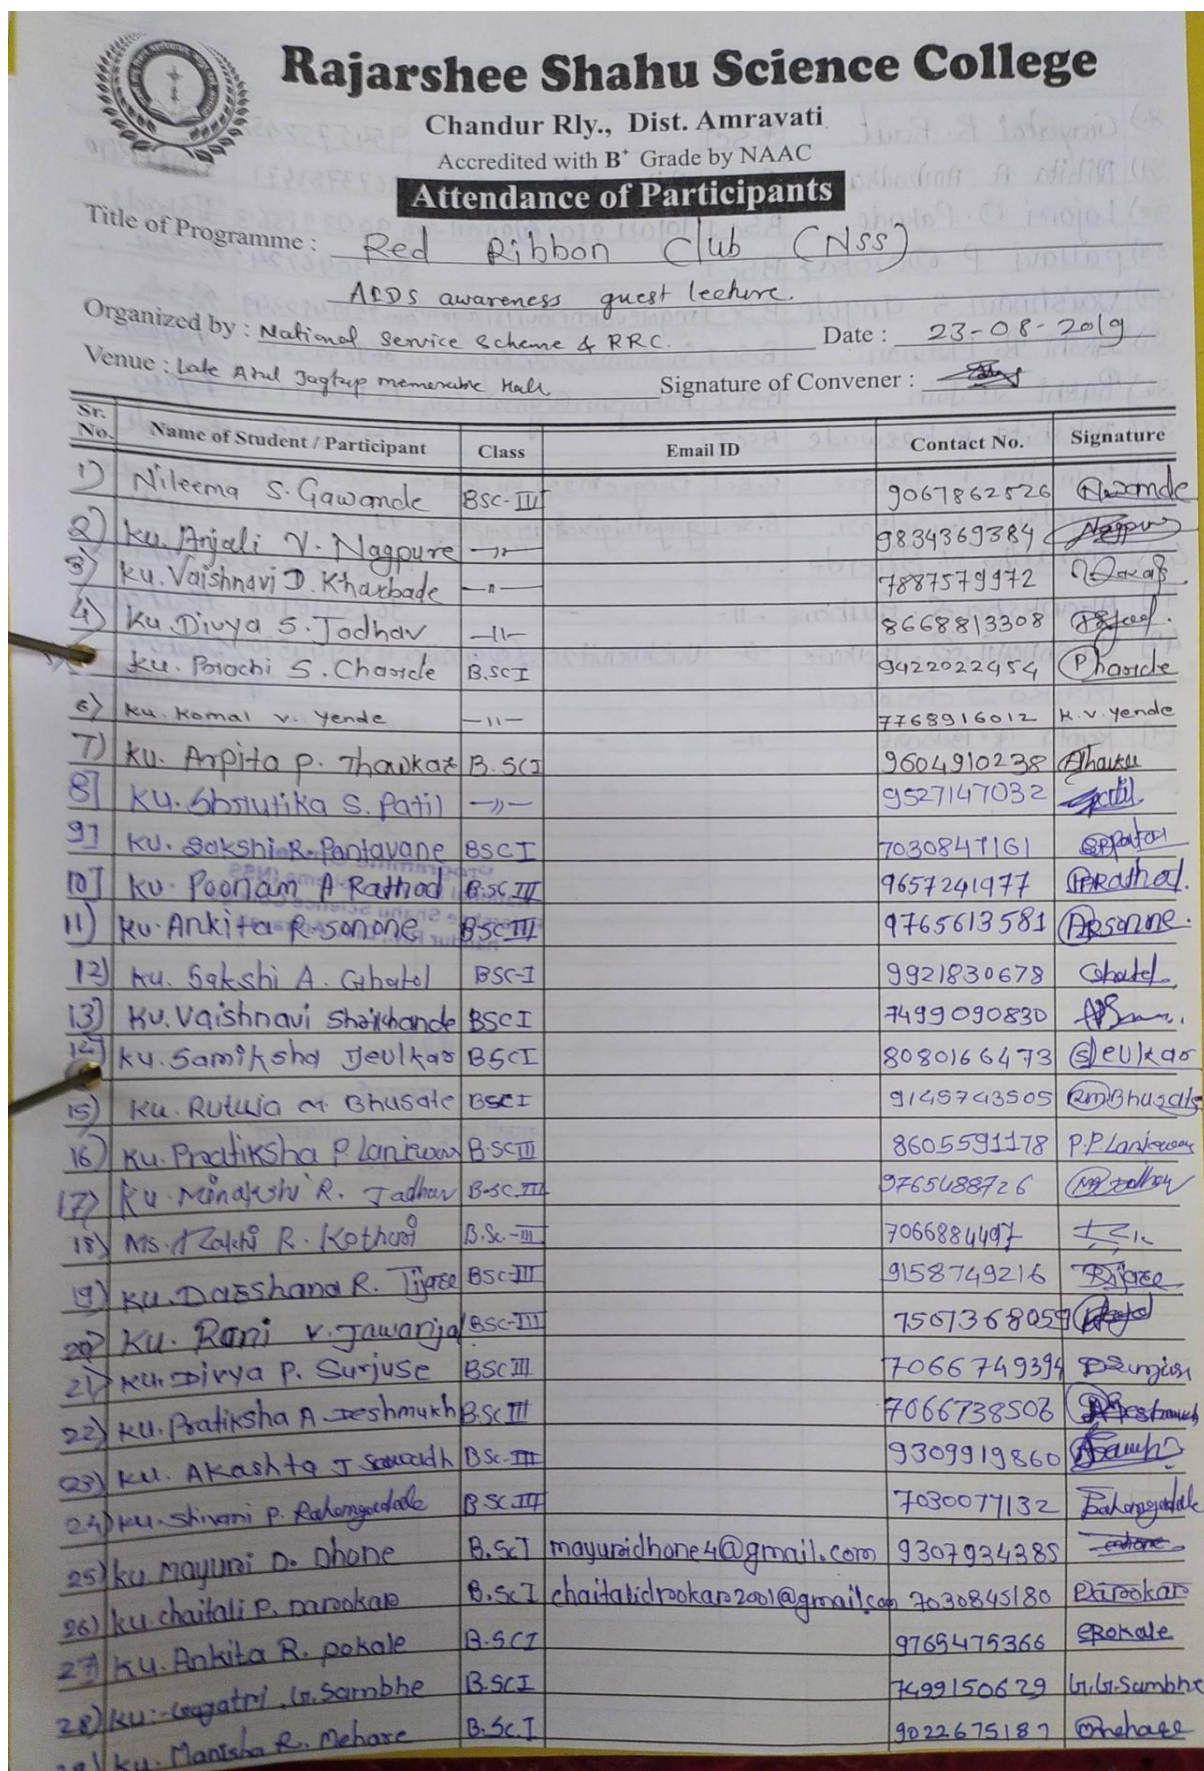 Rajarshee Shahu Science College
Chandur Rly., Dist. Amravati
Accredited with B+ Grade by NAAC
Attendance of Participants
Title of Programme : Red Ribbon Club (NSS)
AIDS awareness guest lecture.
Organized by : National Service Scheme & RRC. Date : 23-08-2019
Venue : Late Atul Jagtap Hall Signature of Convener :
Sr. No. Name of Student / Participant Class Email ID Contact No. Signature
1) Nileema S. Gawande BSC-III 9067862526
2) Ku. Anjali V. Nagpure —"— 9834369384 Nagpure
3) Ku. Vaishnavi D. Kharbade —"— 7887579972
4) Ku. Divya S. Jadhav —"— 8668813308
Ku. Prachi S. Charde B.SCI 9422022454 Pcharde
6) Ku. Komal v. Yende —"— 7768916012 K.v.yende
7) Ku. Arpita P. Thavkar B.SCI 9604910238
8] Ku. Shrutika S. Patil —"— 9527147032 Patil
9] Ku. Sakshi R. Pantavane BSCI 7030847161
10] Ku. Poonam A Rathod B.SC III 9657241977 PARathod.
11) Ku. Ankita R. sonone BSC III 9765613581 ARsonone.
12) Ku. Sakshi A. Ghatol BSC-I 9921830678 Ghatol
13) Ku. Vaishnavi BSCI 7499090830
14) Ku. Samiksha Jeulkar BSCI 8080166473 SJeulkar
15) Ku. Rutuja M. Bhusate BSCI 9145743505 RMBhusate
16) Ku. Pratiksha P. B.SC III 8605591178 P.P.
17) Ku. Minakshi R. Jadhav B.SC.III 9765488726
18) Ms. Rakhi R. Kothari B.Sc.-III 7066884497
19) Ku. Darshana R. Tijare BSC-III 9158749216 Tijare
20) Ku. Rani v. Jawanjal BSC-III 7507368059
21) Ku. Divya P. Surjuse BSC III 7066749394
22) Ku. Pratiksha A. Deshmukh B.SC III 7066738506
23) Ku. Akashta J BSc-III 9309919860
24) Ku. Shivani P. Rahangadale B SC III 7030077132 Rahangadale
25) Ku. Mayuri D. Dhone B.SCI mayuridhone4@gmail.com 9307934385
26) Ku. chaitali P. Darokar B.SCI chaitalidrookar2001@gmail.com 7030845180 Darokar
27) Ku. Ankita R. pokale B.SCI 9765475366 Pokale
28) Ku:- Gayatri. G. Sambhe B.SCI 7499150629 G.G.Sambhe
Ku. Manisha R. Mehare B.Sc.I 9022675187 Mehare